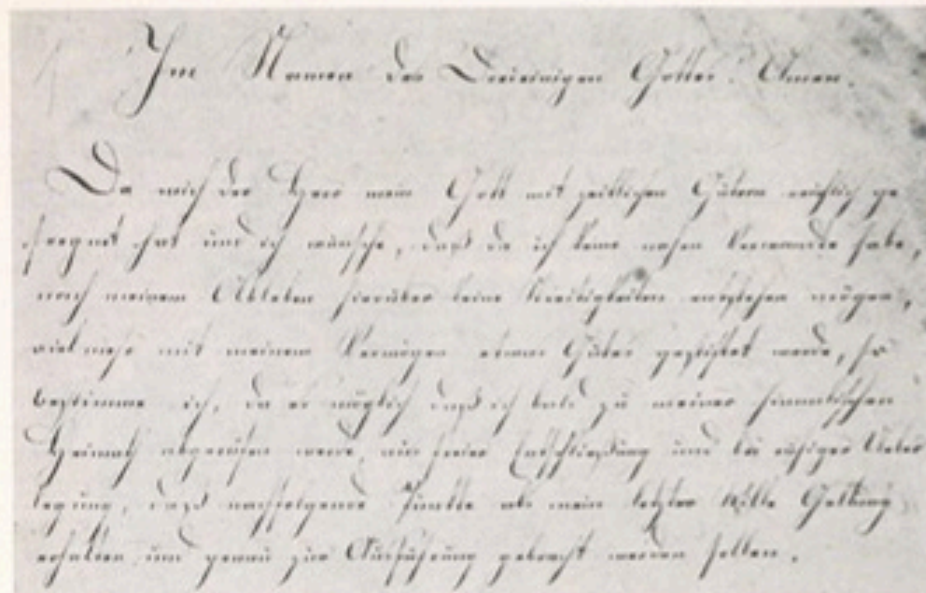 Im Namen des Dreieinigen Gottes! Amen.
Da mich der Herr mein Gott mit zeitlichen Gütern reichlich ge
segnet hat und ich wünsche, daß da ich keine nahen Verwandte habe,
nach meinem Ableben hierüber keine Streitigkeiten entstehen mögen,
vielmehr mit meinem Vermögen etwas Gutes gestiftet werde, so
bestimme ich, da es möglich daß ich bald zu meiner himmlischen
Heimath abgerufen werde, aus freier Entschließung und bei ruhiger Ueber
legung, daß nachfolgende Punkte als mein letzter Wille Geltung
erhalten und genau zur Ausführung gebracht werden sollen.